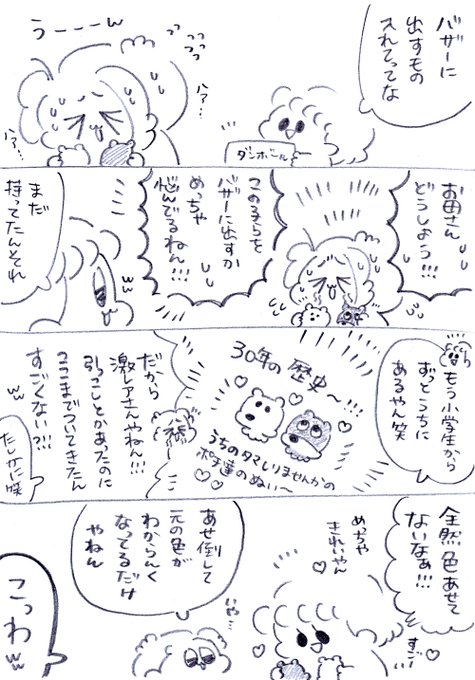 バザーに
出すもの
入れてってな
ダンボール
うーーーんw
っっっっ
ハァ…
ハァ…
お母さん
どうしよう!!!
この子らを
バザーに出すか
めっちゃ
悩んでるねん!!!
まだ
持ってたんそれ
ww
もう小学生から
ずっとうちに
あるやん笑
30年の歴史〜!!!
うちのタマしりませんかの
ポチ達のぬい〜
だから
激レアさんやねん!!!
引こしとかあったのに
ここまでついてきたん
すごくない?!!
たしかに笑
全然色あせて
ないなぁ!!!
すご
めっちゃ
きれいやん
あせ倒して
元の色が
わからんく
なってるだけ
やねん
いや…
こっわ
ww